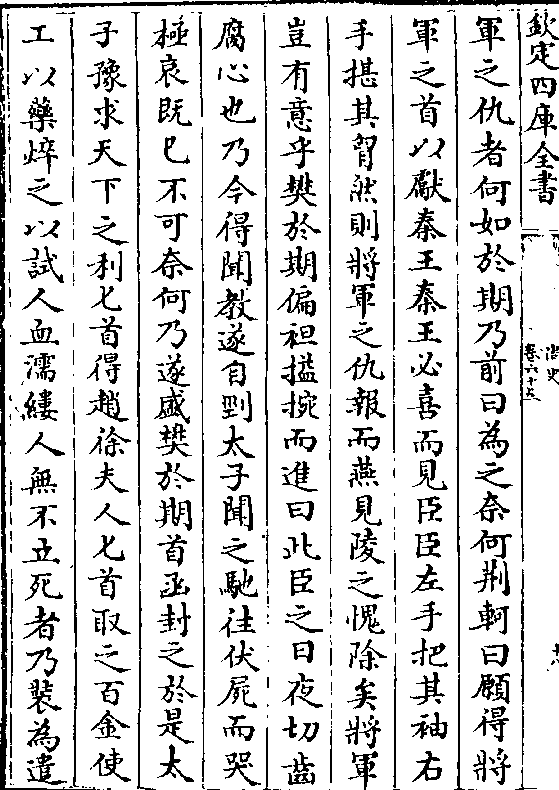 欽定四庫全書
尚史
卷六十六
軍之仇者何如於期乃前曰為之奈何荆軻曰願得將
軍之首以獻秦王秦王必喜而見臣臣左手把其袖右
手揕其胷然則將軍之仇報而燕見陵之愧除矣將軍
豈有意乎樊於期偏袒搤捥而進曰此臣之日夜切齒
腐心也乃今得聞教遂自剄太子聞之馳往伏屍而哭
極哀既已不可奈何乃遂盛樊於期首函封之於是太
子豫求天下之利匕首得趙徐夫人匕首取之百金使
工以藥焠之以試人血濡縷人無不立死者乃裝為遣